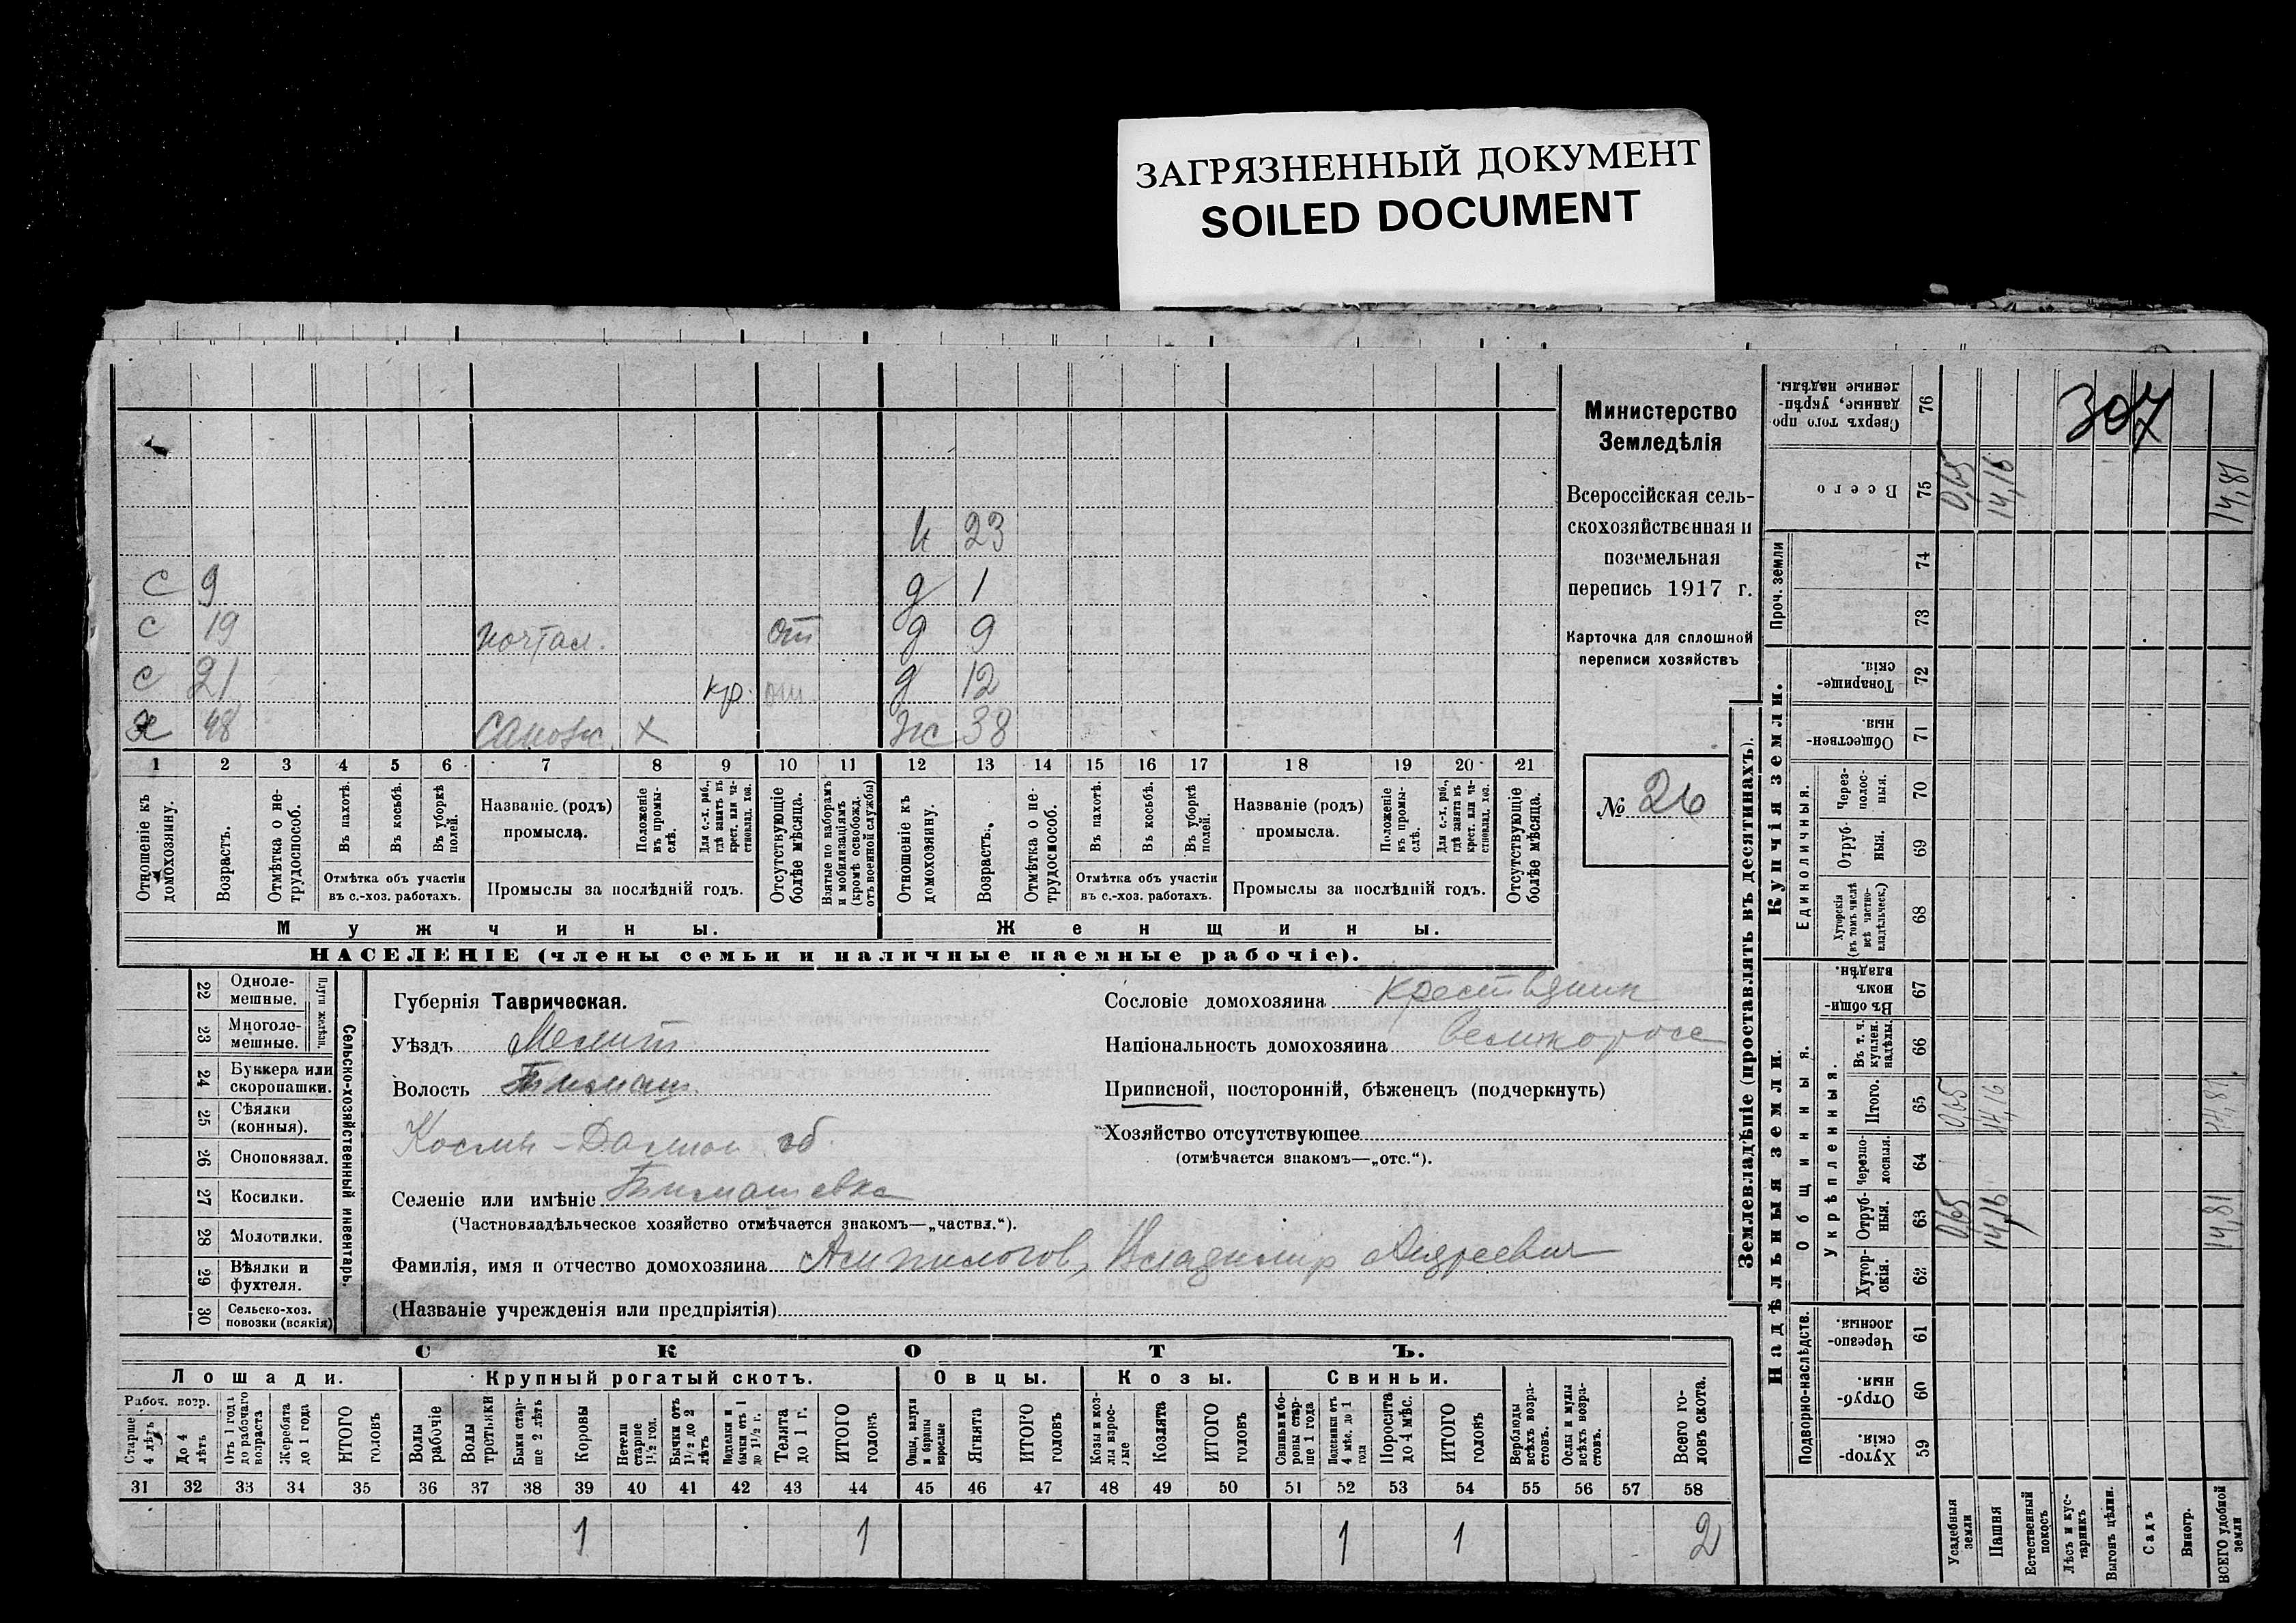 ЗАГРЯЗНЕННЫЙ ДОКУМЕНТ
SOILED DOCUMENT
307
Министерство
Земледѣлія
Всероссійская сель-
скохозяйственная и
поземельная
перепись 1917 г.
Карточка для сплошной
переписи хозяйствъ
№ 26
и 23
с 9 д 1
с 19 почтал. от д 9
с 21 кр. от д 12
х 48 сапожн. х ж 38
1 2 3 4 5 6 7 8 9 10 11 12 13 14 15 16 17 18 19 20 21
Отношеніе къ домохозяину.
Возрастъ.
Отмѣтка о не-трудоспособ.
Въ пахотѣ.
Въ косьбѣ.
Въ уборкѣ полей.
Отмѣтка объ участіи
въ с.-хоз. работахъ.
Названіе (родъ)
промысла.
Положеніе въ промы-слѣ.
Для с.-х. раб., гдѣ занятъ въ крест. или ча-стновлад. хоз.
Промыслы за послѣдній годъ.
Отсутствующіе болѣе мѣсяца.
Взятые по наборамъ и мобилизаціямъ (кромѣ освобожд. отъ военной службы)
Отношеніе къ домохозяину.
Возрастъ.
Отмѣтка о не-трудоспособ.
Въ пахотѣ.
Въ косьбѣ.
Въ уборкѣ полей.
Отмѣтка объ участіи
въ с.-хоз. работахъ.
Названіе (родъ)
промысла.
Положеніе въ промы-слѣ.
Для с.-х. раб., гдѣ занята въ крест. или ча-стновлад. хоз.
Промыслы за послѣдній годъ.
Отсутствующіе болѣе мѣсяца.
Мужчины. Женщины.
НАСЕЛЕНІЕ (члены семьи и наличные наемные рабочіе).
22 Одноле-мешные.
23 Многоле-мешные.
Плуги желѣзн.
24 Буккера или скоропашки.
25 Сѣялки (конныя).
26 Сноповязал.
27 Косилки.
28 Молотилки.
29 Вѣялки и фухтеля.
30 Сельско-хоз. повозки (всякія)
Сельско-хозяйственный инвентарь.
Губернія Таврическая.
Уѣздъ Мелит
Волость Тимаш.
Косми-Домиан. об.
Селеніе или имѣніе Тимашевка
(Частновладѣльческое хозяйство отмѣчается знакомъ—„частвл.“).
Фамилія, имя и отчество домохозяина Анпилогов, Владимир Андреевич
(Названіе учрежденія или предпріятія)
Сословіе домохозяина Крестьянин
Національность домохозяина Великоросс
Приписной, посторонній, бѣженецъ (подчеркнуть)
Хозяйство отсутствующее
(отмѣчается знакомъ—„отс.“).
СКОТЪ.
Лошади. Крупный рогатый скотъ. Овцы. Козы. Свиньи.
Рабоч. возр.
Старше 4 лѣтъ
До 4 лѣтъ
Отъ 1 года до рабочаго возраста
Жеребята до 1 года
ИТОГО головъ
Волы рабочіе
Волы третьяки
Быки стар-ше 2 лѣтъ
Коровы
Нетели старше 1½ год.
Бычки отъ 1½ до 2 лѣтъ
Телята до 1 г.
ИТОГО головъ
Овцы, валухи и бараны взрослые
Ягнята
ИТОГО головъ
Козы и коз-лы взрос-лые
Козлята
ИТОГО головъ
Свиньи и бо-ровы стар-ше 1 года
Подсвинки отъ 4 мѣс. до 1 года
Поросята до 4 мѣс.
ИТОГО головъ
Верблюды всѣхъ возра-стовъ.
Ослы и мулы всѣхъ возра-стовъ.
Всего го-ловъ скота.
31 32 33 34 35 36 37 38 39 40 41 42 43 44 45 46 47 48 49 50 51 52 53 54 55 56 57 58
1 1 1 1 2
Землевладѣніе (проставлять въ десятинахъ).
Сверхъ того про данные, укрѣп-ленные надѣлы. 76
Всего 75 0,65 14,16 14,81
Проч. земли 74 73
Купчія земли.
Товарище-скія. 72
Обществен-ныя. 71
Единоличныя.
Через-полос-ныя. 70
Отруб-ныя. 69
Хуторскія (въ томъ числѣ всѣ частно-владѣльческ.) 68
Надѣльныя земли.
Общинныя.
Въ общи-номъ владѣн. 67
Укрѣпленныя.
Въ т. ч. куплен. надѣлы. 66
Итого. 65 0,65 14,16 14,81
Черезпо-лосныя. 64
Отруб-ныя. 63 0,65 14,16 14,81
Хутор-скія. 62
Подворно-наслѣдств.
Черезпо-лосныя. 61
Отруб-ныя. 60
Хутор-скія. 59
Усадебныя земли
Пашня
Естественный покосъ
Лѣсъ и кус-тарникъ
Выгонъ цѣлин.
Садъ
Виногр.
ВСЕГО удобной земли